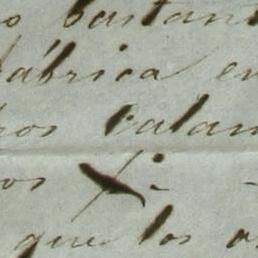 o bastant
fábrica en
hos Catan
os
que los a